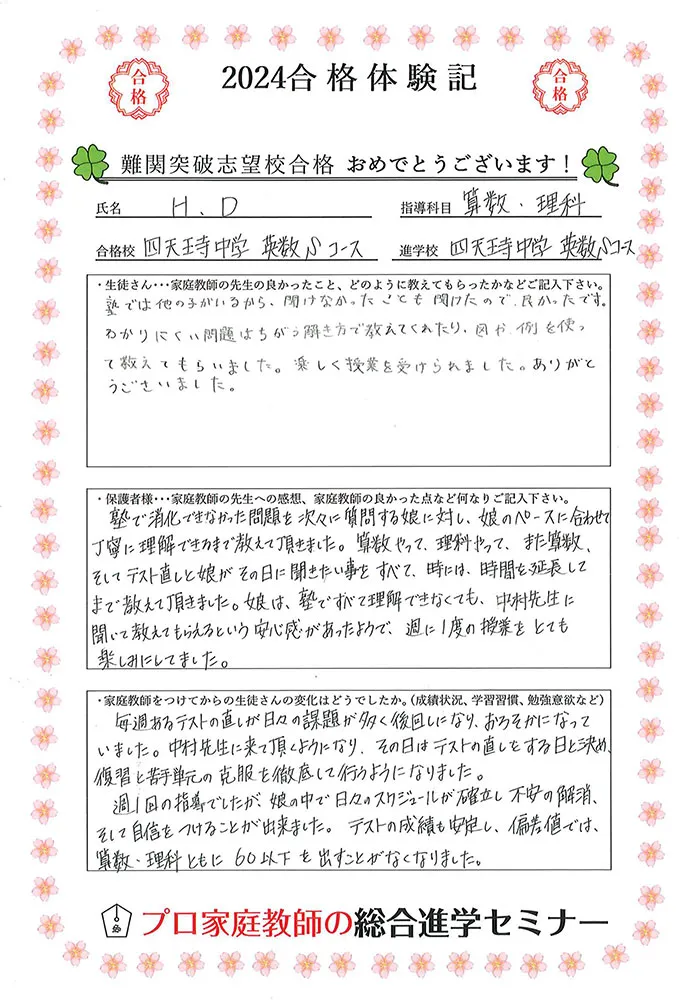 2024合格体験記
合格
合格
難関突破志望校合格 おめでとうございます！
氏名 H.D 指導科目 算数・理科
合格校 四天王寺中学 英数Sコース 進学校 四天王寺中学 英数Sコース
・生徒さん・・・家庭教師の先生の良かったこと、どのように教えてもらったかなどご記入下さい。
塾では他の子がいるから、聞けなかったことも聞けたので、良かったです。
わかりにくい問題はちがう解き方で教えてくれたり、図や、例を使っ
て教えてもらいました。楽しく授業を受けられました。ありがと
うございました。
・保護者様・・・家庭教師の先生への感想、家庭教師の良かった点など何なりご記入下さい。
塾で消化できなかった問題を次々に質問する娘に対し、娘のペースに合わせて
丁寧に理解できるまで教えて頂きました。算数やって、理科やって、また算数、
そしてテスト直しと娘がその日に聞きたい事をすべて、時には、時間を延長して
まで教えて頂きました。娘は、塾ですべて理解できなくても、中村先生に
聞いて教えてもらえるという安心感があったようで、週に1度の授業をとても
楽しみにしてました。
・家庭教師をつけてからの生徒さんの変化はどうでしたか。（成績状況、学習習慣、勉強意欲など）
毎週あるテストの直しが日々の課題が多く後回しになり、おろそかになって
いました。中村先生に来て頂くようになり、その日はテストの直しをする日と決め、
復習と苦手単元の克服を徹底して行うようになりました。
週1回の指導でしたが、娘の中で日々のスケジュールが確立し不安の解消、
そして自信をつけることが出来ました。テストの成績も安定し、偏差値では、
算数・理科ともに60以下を出すことがなくなりました。
プロ家庭教師の総合進学セミナー